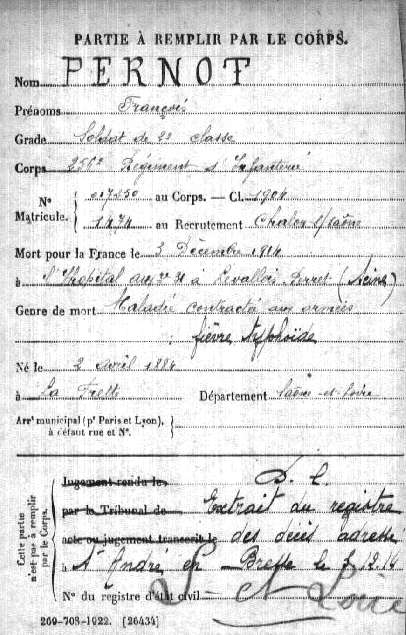 PARTIE À REMPLIR PAR LE CORPS.
Nom PERNOT
Prénoms François
Grade Soldat de 2e classe
Corps 256e Régiment d'Infanterie
N° Matricule. { au Corps. — Cl. 1904
1474 au Recrutement Chalon s/Saône
Mort pour la France le 3 Décembre 1914
à l'Hôpital à Levallois-Perret (Seine)
Genre de mort Maladie contractée aux armées
fièvre typhoïde
Né le 2 avril 1884
à La Frette Département Saône-et-Loire
Arrt municipal (pr Paris et Lyon), à défaut rue et N°.
Cette partie n'est pas à remplir par le Corps.
Jugement rendu le D. C.
par le Tribunal de Extrait du registre
acte ou jugement transcrit le des décès adressé
à St André en Bresse le 12.14
N° du registre d'état civil S et Loire
269-708-1922. [26434]